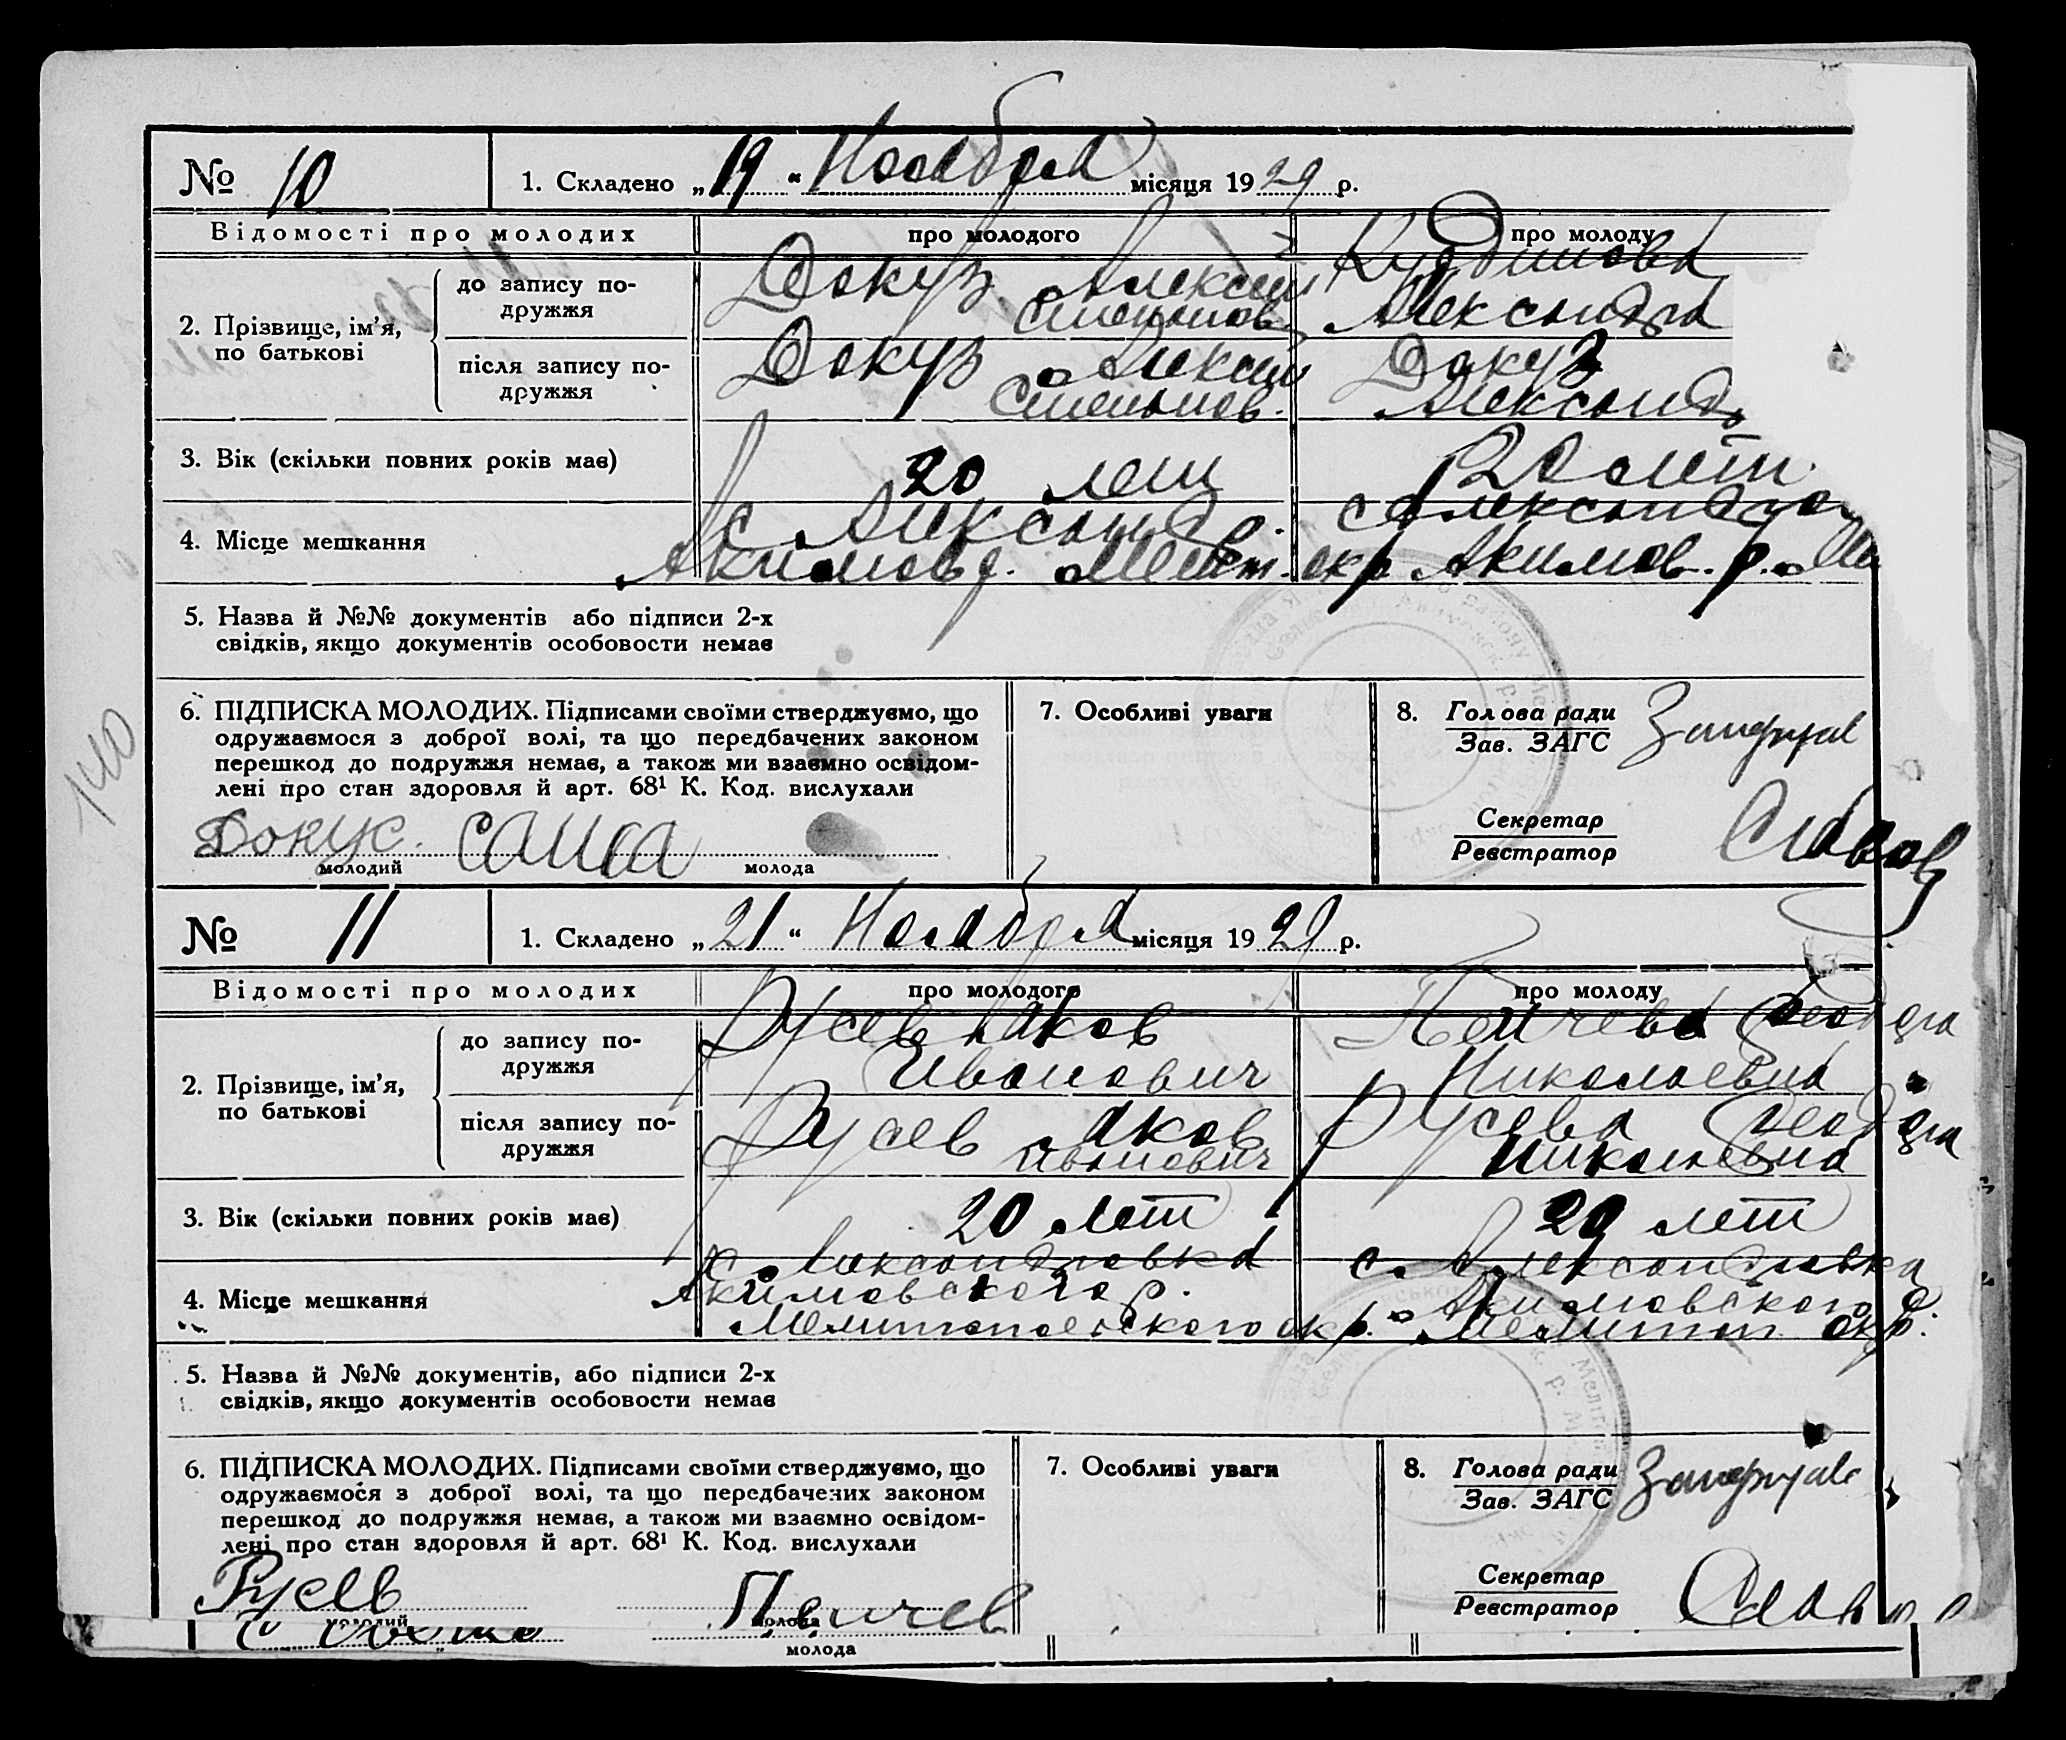 № 10 1. Складено „19“ Ноября місяця 1929 р.
Відомості про молодих про молодого про молоду
2. Прізвище, ім’я, по батькові
до запису по-
дружжя
Докуз Алексей
Степанов.
Александра
після запису по-
дружжя
Докуз Алексей
Степанов.
Докуз
Александ
3. Вік (скільки повних років має) 20 лет 20 лет
4. Місце мешкання с Александр. с Александро
Акимов р. Мелит. окр Акимов. р. Ме
5. Назва й №№ документів або підписи 2-х
свідків, якщо документів особовости немає
6. ПІДПИСКА МОЛОДИХ. Підписами своїми стверджуємо, що
одружаємося з доброї волі, та що передбачених законом
перешкод до подружжя немає, а також ми взаємно освідом-
лені про стан здоровля й арт. 68¹ К. Код. вислухали
Докус. саша
молодий молода
7. Особливі уваги
8. Голова ради
Зав. ЗАГС
Секретар
Реєстратор
140
№ 11 1. Складено „21“ Ноября місяця 1929 р.
Відомості про молодих про молодого про молоду
2. Прізвище, ім’я, по батькові
до запису по-
дружжя
Русев Яков
Иванович
Пейчева Феодора
Николаевна
після запису по-
дружжя
Русев Яков
Иванович
Русева Феодора
Николаевна
3. Вік (скільки повних років має) 20 лет 20 лет
4. Місце мешкання с. Александровка с. Александровка
Акимовского р. Акимовского р.
Мелитопольского окр. Мелитоп. окр.
5. Назва й №№ документів, або підписи 2-х
свідків, якщо документів особовости немає
6. ПІДПИСКА МОЛОДИХ. Підписами своїми стверджуємо, що
одружаємося з доброї волі, та що передбачених законом
перешкод до подружжя немає, а також ми взаємно освідом-
лені про стан здоровля й арт. 68¹ К. Код. вислухали
Русев Пейчев
молодий молода
7. Особливі уваги
8. Голова ради
Зав. ЗАГС
Секретар
Реєстратор
молода